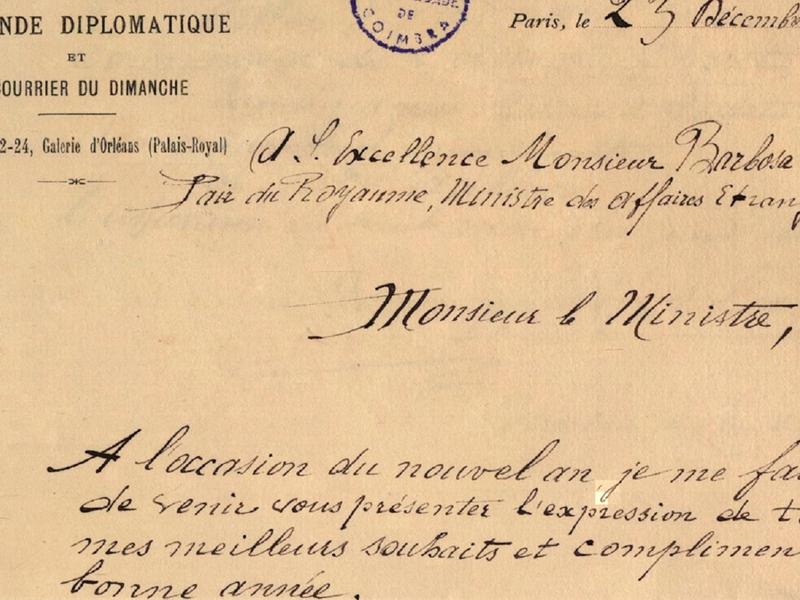 NDE DIPLOMATIQUE
ET
OURRIER DU DIMANCHE
2-24, Galerie d'Orléans (Palais-Royal)
DE
COIMBRA
Paris, le 23 Décemb
A S. Excellence Monsieur Barbosa
Pair du Royaume, Ministre des Affaires Etran
Monsieur le Ministre,
A l'occasion du nouvel an je me fa
de venir vous présenter l'expression de t
mes meilleurs souhaits et complimen
bonne année.